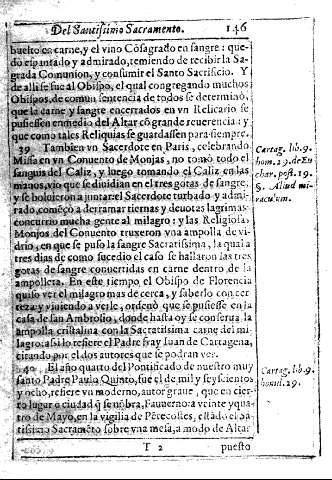 Del Santissimo Sacramento. 146
buelto en carne, y el vino Cōsagrado en sangre: que-
dò espantado y admirado, temiendo de recibir la Sa-
grada Comunion, y consumir el Santo Sacrificio. Y
de alli se fue al Obispo, el qual congregando muchos
Obispos, de comun sentencia de todos se determinò,
que la carne y sangre encerrados en vn Relicario se
pusiessen en medio del Altar cō grande reuerencia: y
que como tales Reliquias se guardassen para siempre.
39 Tambien vn Sacerdote en Paris, celebrando
Missa en vn Conuento de Monjas, no tomò todo el
sanguis del Caliz, y luego tomando el Caliz en las
manos, vio que se diuidian en tres gotas de sangre,
y se boluieron a juntar el Sacerdote turbado y admi-
rado, començò a derramar tiernas y deuotas lagrimas
concurrio mucha gente al milagro: y las Religiosas
Monjas del Conuento truxeron vna ampolla de vi-
drio, en que se puso la sangre Sacratissima, la qual a
tres dias de como sucedio el caso se hallaron las tres
gotas de sangre conuertidas en carne dentro de la
ampollera. En este tiempo el Obispo de Florencia
quiso ver el milagro mas de cerca, y saberlo con cer-
teza: y viniendo a verle, ordenò que se pusiesse en la
casa de san Ambrosio, donde hasta oy se conserua la
ampolla cristalina con la Sacratissima carne del mi-
lagro: assi lo refiere el Padre fray Iuan de Cartagena,
citando por el dos autores que se podran ver.
40 El año quarto del Pontificado de nuestro muy
santo Padre Paulo Quinto, fue el de mil y seyscientos
y ocho, refiere vn moderno, autor graue, que en cier-
to lugar o ciudad q̃ se nōbra, Fauuerno: a veinte y qua-
tro de Mayo, en la vigilia de Pētecostes, estādo el Sā-
tissimo Sacramēto sobre vna mesa, a modo de Altar
T 2 puesto
Cartag. lib. 9.
hom. 29. de Eu
char. post. 19.
§. Aliud mi-
raculum.
Cartag. lib. 9.
homil. 29.